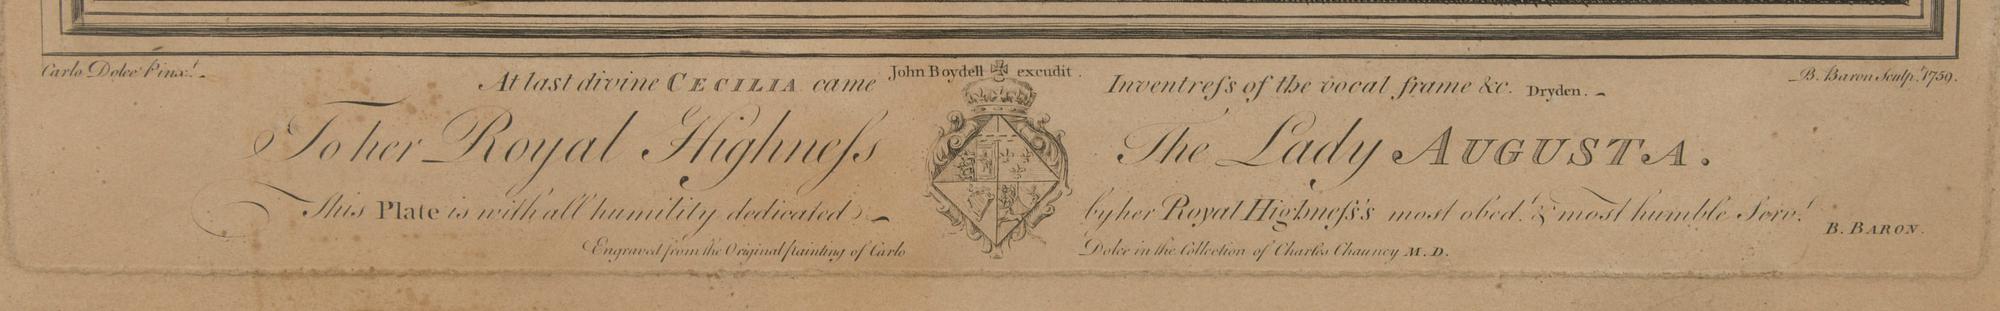 Carlo Dolce Pinx.t
John Boydell excudit.
B. Baron Sculp.t 1759.
At last divine CECILIA came Inventreſs of the vocal frame &c. Dryden.
To her Royal Highneſs The Lady AUGUSTA.
This Plate is with all humility dedicated by her Royal Highneſs's most obed.t & most humble Serv.t
B. BARON.
Engraved from the Original Painting of Carlo Dolce in the Collection of Charles Chauncy M.D.